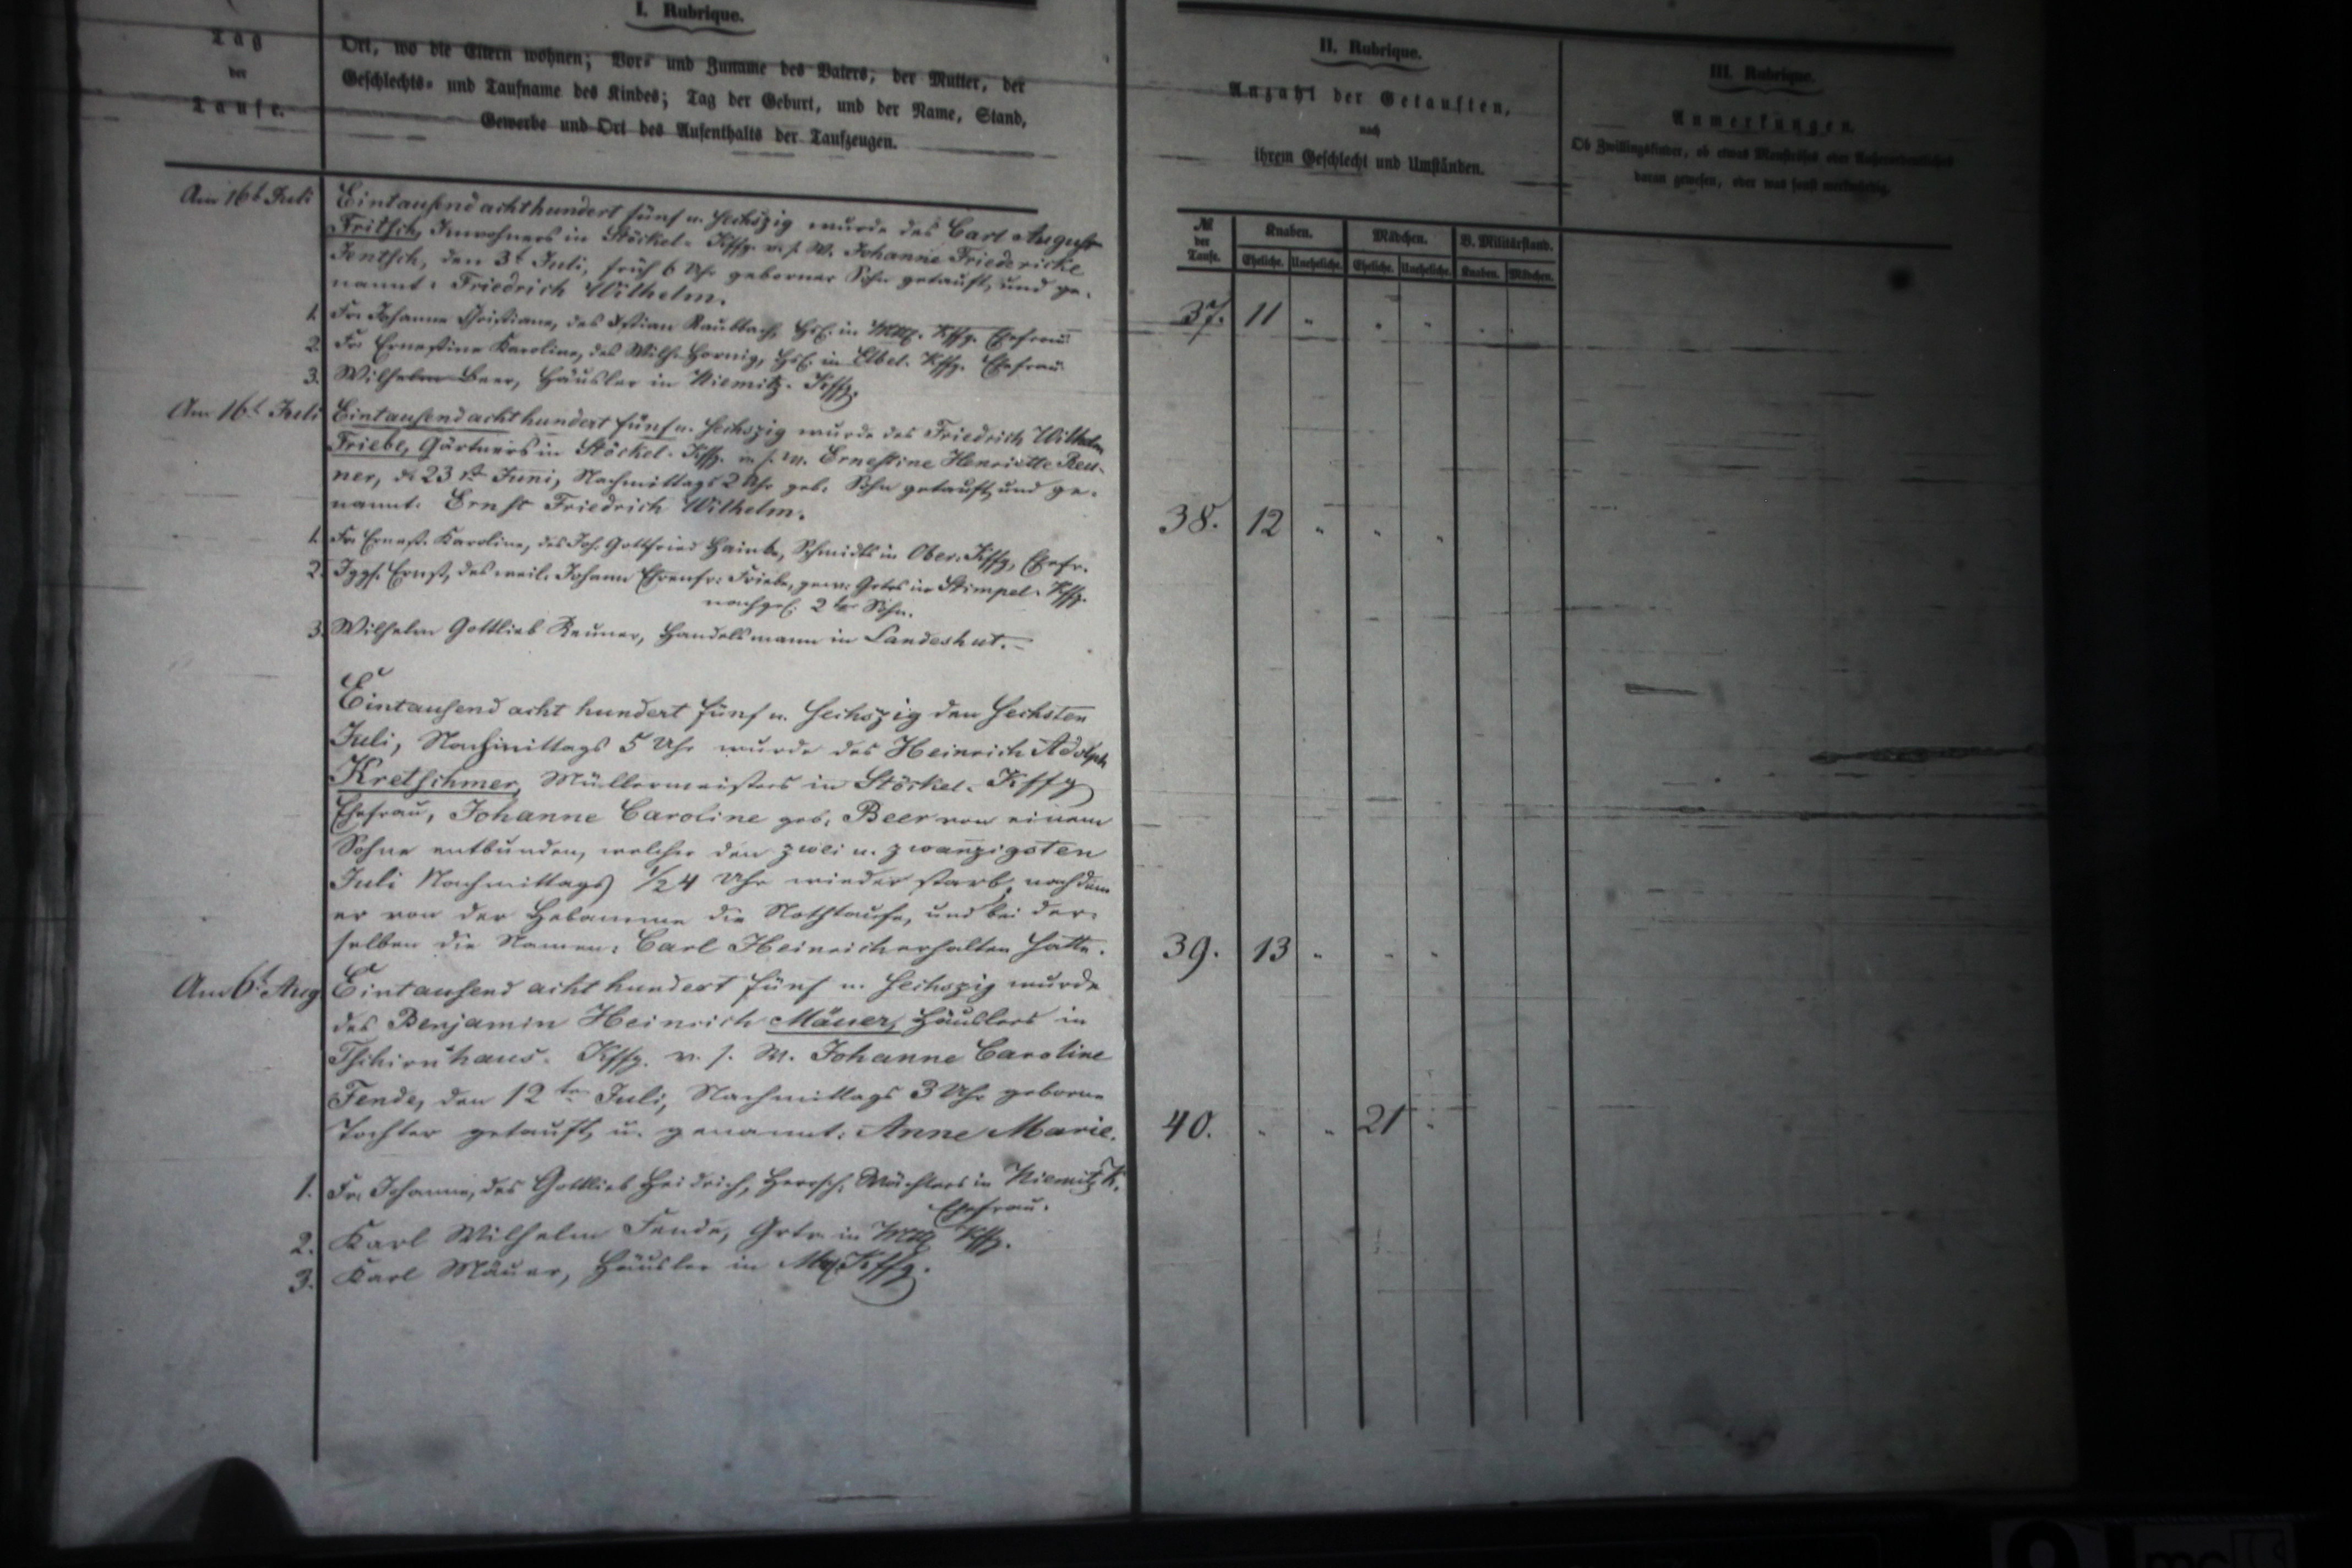 I. Rubrique.
Tag
der
Taufe.
Ort, wo die Eltern wohnen; Vor- und Zuname des Vaters; der Mutter, der
Geschlechts- und Taufname des Kindes; Tag der Geburt, und der Name, Stand,
Gewerbe und Ort des Aufenthalts der Taufzeugen.
Am 16t Juli
Eintausend achthundert fünf u. sechszig wurde des Carl August
Fritsch, Inwohners in Stöckel-Kffg. v. s. W. Johanne Friedericke
Jentsch, den 3t Juli, früh 6 Uhr geborner Sohn getauft, und ge-
nannt: Friedrich Wilhelm.
1. Fr. Johanne Christiane, des Xstian Raubbach, Hsl. in Kffg. Ehefrau
2. Fr. Ernestine Karoline, des Wilh. Hornig, Hsl. in Elbel-Kffg. Ehefrau
3. Wilhelm Beer, Häusler in Niemitz-Kffg.
Am 16t Juli
Eintausend achthundert fünf u. sechszig wurde des Friedrich Wilhelm
Friebe, Gärtners in Stöckel-Kffg. v. s. W. Ernestine Henriette Reu-
ner, d. 23st Juni, Nachmittags 2 Uhr geb. Sohn getauft und ge-
nannt: Ernst Friedrich Wilhelm.
1. Fr. Ernest. Karoline, des Joh. Gottfried Hainke, Schmidts in Ober-Kffg, Ehefr.
2. Jggs. Ernst, des weil. Johann Ehrenfr. Friebe, gew. Grtrs in Stimpel-Kffg.
nachgel. 2ter Sohn.
3. Wilhelm Gottlieb Reuner, Handelsmann in Landeshut.
Eintausend acht hundert fünf u. sechszig den sechsten
Juli, Nachmittags 5 Uhr wurde des Heinrich Adolph
Kretschmer, Müllermeisters in Stöckel-Kffg
Ehefrau, Johanne Caroline geb. Beer von einem
Sohne entbunden, welcher den zwei u. zwanzigsten
Juli Nachmittags 1/2 4 Uhr wieder starb, nachdem
er von der Hebamme die Nothtaufe, und bei der-
selben die Namen: Carl Heinrich erhalten hatte.
Am 6t Aug
Eintausend acht hundert fünf u. sechszig wurde
des Benjamin Heinrich Mäuer, Häuslers in
Tschirnhaus-Kffg. v. s. W. Johanne Caroline
Fende, den 12ten Juli, Nachmittags 3 Uhr geborne
Tochter getauft, u. genannt: Anne Marie.
1. Fr. Johanne, des Gottlieb Heidrich, herrsch. Wächters in Niemitz K.
Ehefrau.
2. Karl Wilhelm Fende, Grtr. in Kffg.
3. Karl Mäuer, Häusler in Kffg.
II. Rubrique.
Anzahl der Getauften,
nach
ihrem Geschlecht und Umständen.
№
der
Taufe.
Knaben.
Mädchen.
B. Militärstand.
Eheliche. Uneheliche. Eheliche. Uneheliche. Knaben. Mädchen.
37. 11 " " " " "
38. 12 " " "
39. 13 " " "
40. " " 21 "
III. Rubrique.
Anmerkungen.
Ob Zwillingskinder, ob etwas Monströses oder Außerordentliches
daran gewesen, oder was sonst merkwürdig.